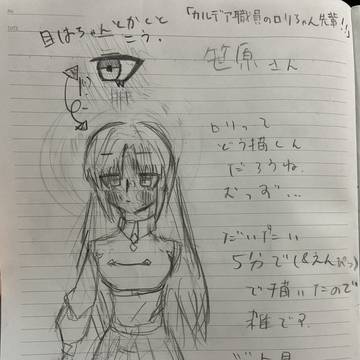 「カルデア職員のロリちゃん先輩！」
目はちゃんとかくと
こう。
笹原さん
ロリって
どう描くん
だろうね
だいたい
5分で(&えんぴつ)
で描いたので
雑です